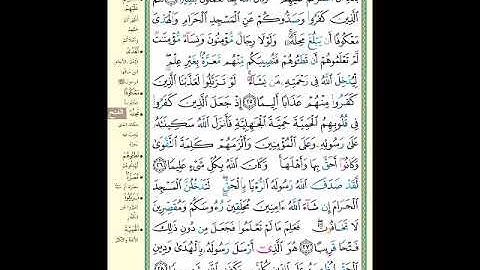 ٱلَّذِينَ كَفَرُوا۟ وَصَدُّوكُمْ عَنِ ٱلْمَسْجِدِ ٱلْحَرَامِ وَٱلْهَدْىَ
مَعْكُوفًا أَن يَبْلُغَ مَحِلَّهُۥ ۚ وَلَوْلَا رِجَالٌ مُّؤْمِنُونَ وَنِسَآءٌ مُّؤْمِنَٰتٌ
لَّمْ تَعْلَمُوهُمْ أَن تَطَـُٔوهُمْ فَتُصِيبَكُم مِّنْهُم مَّعَرَّةٌۢ بِغَيْرِ عِلْمٍ ۖ
لِّيُدْخِلَ ٱللَّهُ فِى رَحْمَتِهِۦ مَن يَشَآءُ ۚ لَوْ تَزَيَّلُوا۟ لَعَذَّبْنَا ٱلَّذِينَ
كَفَرُوا۟ مِنْهُمْ عَذَابًا أَلِيمًا ٢٥ إِذْ جَعَلَ ٱلَّذِينَ كَفَرُوا۟
فِى قُلُوبِهِمُ ٱلْحَمِيَّةَ حَمِيَّةَ ٱلْجَٰهِلِيَّةِ فَأَنزَلَ ٱللَّهُ سَكِينَتَهُۥ
عَلَىٰ رَسُولِهِۦ وَعَلَى ٱلْمُؤْمِنِينَ وَأَلْزَمَهُمْ كَلِمَةَ ٱلتَّقْوَىٰ
وَكَانُوٓا۟ أَحَقَّ بِهَا وَأَهْلَهَا ۚ وَكَانَ ٱللَّهُ بِكُلِّ شَىْءٍ عَلِيمًا ٢٦
لَّقَدْ صَدَقَ ٱللَّهُ رَسُولَهُ ٱلرُّءْيَا بِٱلْحَقِّ ۖ لَتَدْخُلُنَّ ٱلْمَسْجِدَ
ٱلْحَرَامَ إِن شَآءَ ٱللَّهُ ءَامِنِينَ مُحَلِّقِينَ رُءُوسَكُمْ وَمُقَصِّرِينَ
لَا تَخَافُونَ ۖ فَعَلِمَ مَا لَمْ تَعْلَمُوا۟ فَجَعَلَ مِن دُونِ ذَٰلِكَ
فَتْحًا قَرِيبًا ٢٧ هُوَ ٱلَّذِىٓ أَرْسَلَ رَسُولَهُۥ بِٱلْهُدَىٰ وَدِينِ